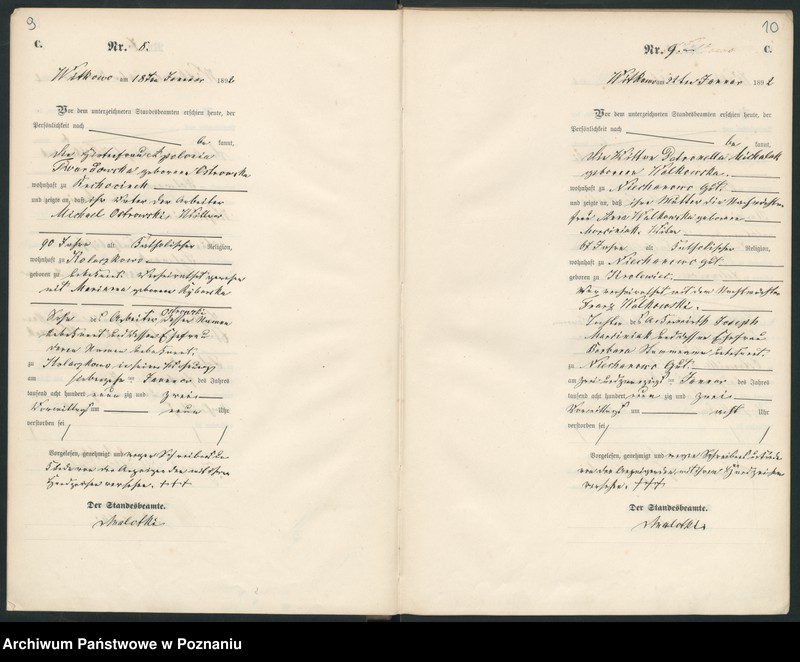 9
C.
Nr. 8.
Witkowo am 18ten Januar 1892
Vor dem unterzeichneten Standesbeamten erschien heute, der
Persönlichkeit nach
be kannt,
die Apolonia
Twardowska geborene Ostrowska
wohnhaft zu
und zeigte an, daß ihr Vater der Arbeiter
Michael Ostrowski, Wittwer
90 Jahre alt katholischer Religion,
wohnhaft zu Kolaczkowo
geboren zu unbekannt. Verheirathet gewesen
mit Marianna geborene
Sohn des Arbeiter Ostrowski dessen Namen
unbekannt und dessen Ehefrau
deren Namen unbekannt.
zu Kolaczkowo in seiner Wohnung
am siebenzehn ten Januar des Jahres
tausend acht hundert neun zig und zwei
Vormittags um neun Uhr
verstorben sei
Vorgelesen, genehmigt und wegen Schreibens un-
kunde von der Anzeigenden mit ihrem
Handzeichen versehen. +++
Der Standesbeamte.
10
Nr. 9.
C.
Witkowo am 22ten Januar 1892
Vor dem unterzeichneten Standesbeamten erschien heute, der
Persönlichkeit nach
be kannt,
die Wittwe Petronella Michalak
geborene Walkowska.
wohnhaft zu Niechanowo Gut.
und zeigte an, daß ihre Mutter die Nachtwächter-
frau Anna Walkowska geborene
Marciniak.
68 Jahre alt katholischer Religion,
wohnhaft zu Niechanowo Gut.
geboren zu
War verheirathet mit dem Nachtwächter
Franz Walkowski.
Tochter des Joseph
Marciniak und dessen Ehefrau
Barbara unbekannt.
zu Niechanowo Gut.
am zwei und zwanzigsten Januar des Jahres
tausend acht hundert neun zig und zwei
Vormittags um acht Uhr
verstorben sei
Vorgelesen, genehmigt und wegen Schreibens unkunde
von der Anzeigenden mit ihrem Handzeichen
versehen. +++
Der Standesbeamte.
Archiwum Państwowe w Poznaniu